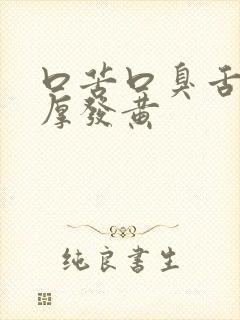 口苦口臭舌
厚發黄
纯良書生